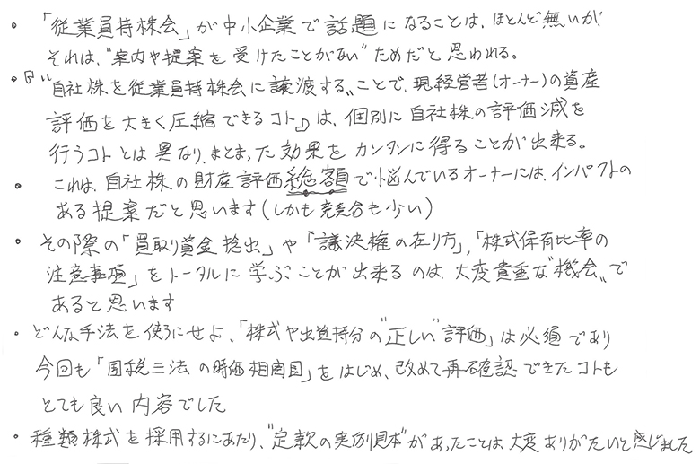 ・「従業員持株会」が中小企業で話題になることは、ほとんど無いが
それは、"案内や提案を受けたことがない"ためだと思われる。
・『"自社株を従業員持株会に譲渡する"ことで、現経営者(オーナー)の資産
評価を大きく圧縮できるコト』は、個別に自社株の評価減を
行うコトとは異なり、まとまった効果をカンタンに得ることが出来る。
・これは、自社株の財産評価総額で悩んでいるオーナーには、インパクトの
ある提案だと思います(しかも競合も少い)
・その際の「買取り資金捻出」や「議決権の在り方」,「株式保有比率の
注意事項」をトータルに学ぶことが出来るのは、大変貴重な"機会"で
あると思います
・どんな手法を使うにせよ、「株式や出資持分の"正しい"評価」は必須であり
今回も「国税三法の時価相関図」をはじめ、改めて再確認できたコトも
とても良い内容でした
・種類株式を採用するにあたり、"定款の実例見本"があったことは大変ありがたいと感じました